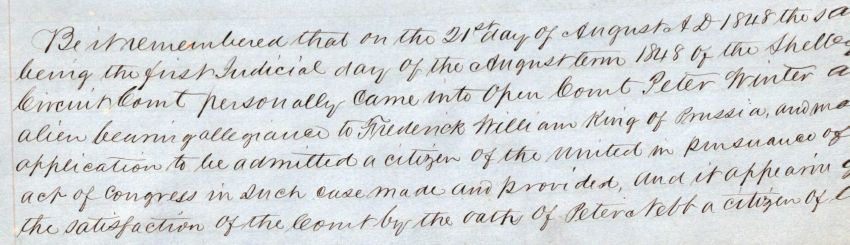 Be it remembered that on the 21st day of August A D 1848 the sa
being the first Judicial day of the August term 1848 of the Shelb
Circuit Court personally came into Open Court Peter Winter a
alien bearing allegiance to Frederick William King of Prussia, and ma
application to be admitted a citizen of the United in pursuance of
act of Congress in such case made and provided, and it appearing
the satisfaction of the Court by the oath of Peter Nebb a citizen of